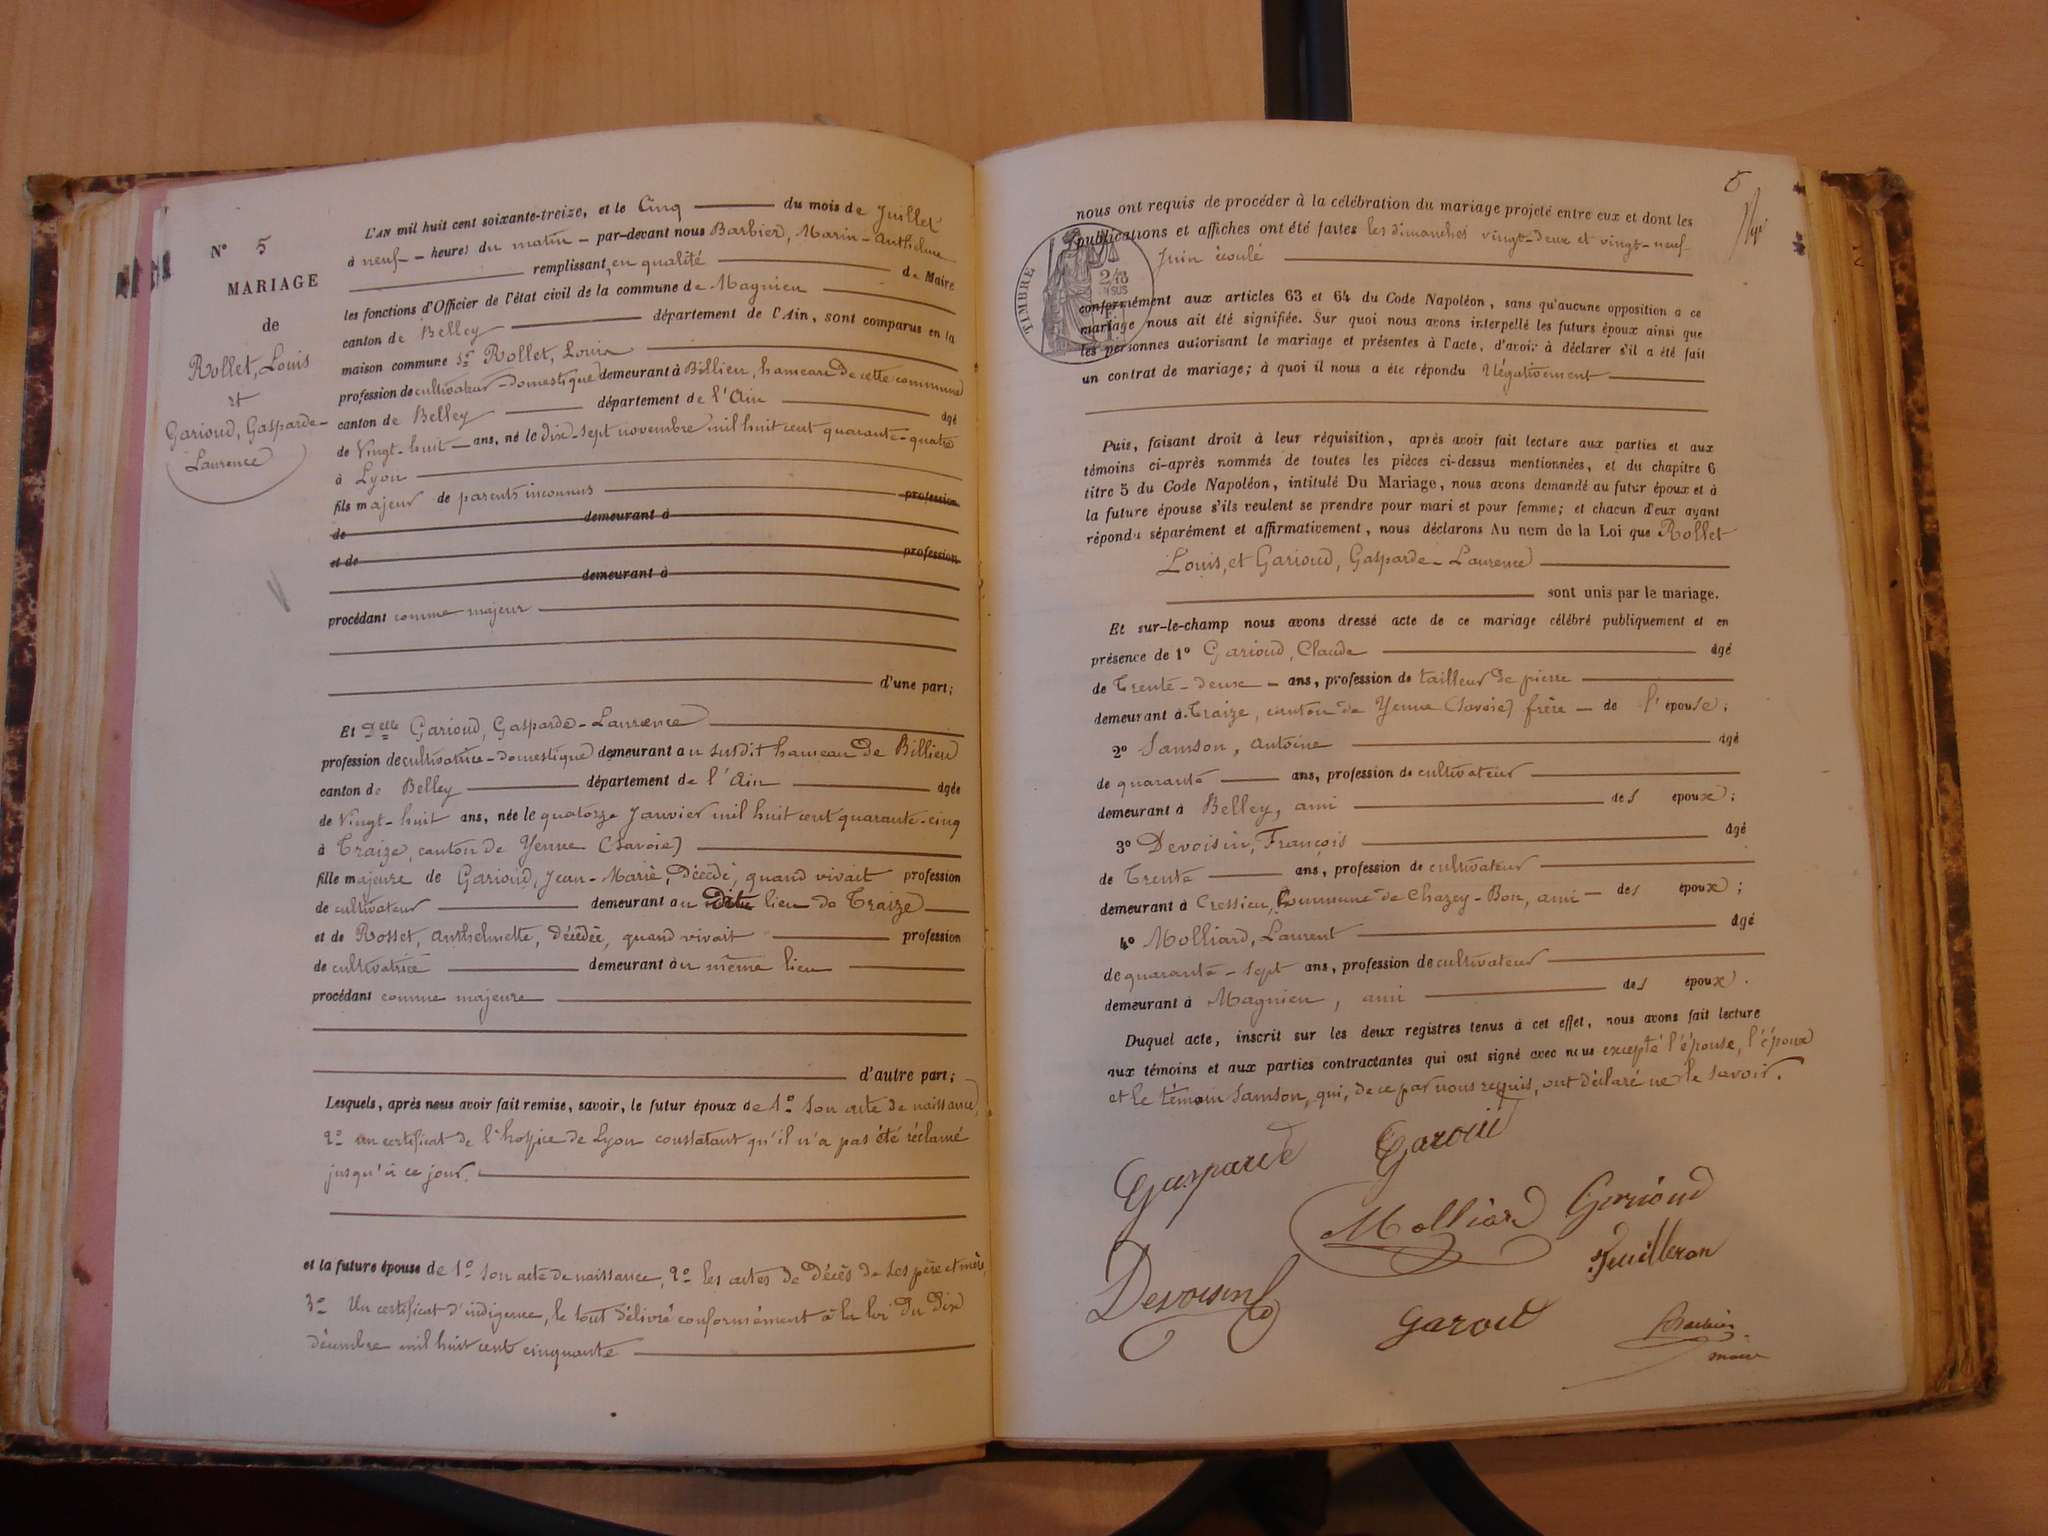 N° 5
MARIAGE
de
Rollet, Louis
et
Garioud, Gasparde-
Laurence
L'AN mil huit cent soixante-treize, et le Cinq du mois de Juillet
à neuf heures du matin par-devant nous Barbier, Marin-Anthelme
remplissant, en qualité de Maire
les fonctions d'Officier de l'état civil de la commune de Magnieu
canton de Belley département de l'Ain, sont comparus en la
maison commune Sr Rollet, Louis
profession de cultivateur-domestique demeurant à Billieu, hameau de cette commune
canton de Belley département de l'Ain âgé
de Vingt-huit ans, né le dix-sept novembre mil huit cent quarante-quatre
à Lyon
fils majeur de parents inconnus profession
de demeurant à
et de profession
demeurant à
procédant comme majeur
d'une part;
Et Delle Garioud, Gasparde-Laurence
profession de cultivatrice-domestique demeurant au susdit hameau de Billieu
canton de Belley département de l'Ain âgée
de Vingt-huit ans, née le quatorze Janvier mil huit cent quarante-cinq
à Traize, canton de Yenne (Savoie)
fille majeure de Garioud, Jean-Marie, décédé, quand vivait profession
de cultivateur demeurant au dit lieu de Traize
et de Rosset, Anthelmette, décédée, quand vivait profession
de cultivatrice demeurant au même lieu
procédant comme majeure
d'autre part;
Lesquels, après nous avoir fait remise, savoir, le futur époux de 1° son acte de naissance,
2° un certificat de l'hospice de Lyon constatant qu'il n'a pas été réclamé
jusqu'à ce jour.
et la future épouse de 1° son acte de naissance, 2° les actes de décès de ses père et mère,
3° Un certificat d'indigence, le tout délivré conformément à la loi du dix
décembre mil huit cent cinquante
5
nous ont requis de procéder à la célébration du mariage projeté entre eux et dont les
publications et affiches ont été faites les dimanches vingt-deux et vingt-neuf
Juin écoulé
TIMBRE
conformément aux articles 63 et 64 du Code Napoléon, sans qu'aucune opposition a ce
mariage nous ait été signifiée. Sur quoi nous avons interpellé les futurs époux ainsi que
les personnes autorisant le mariage et présentes à l'acte, d'avoir à déclarer s'il a été fait
un contrat de mariage; à quoi il nous a été répondu Négativement
Puis, faisant droit à leur réquisition, après avoir fait lecture aux parties et aux
témoins ci-après nommés de toutes les pièces ci-dessus mentionnées, et du chapitre 6
titre 5 du Code Napoléon, intitulé Du Mariage, nous avons demandé au futur époux et à
la future épouse s'ils veulent se prendre pour mari et pour femme; et chacun d'eux ayant
répondu séparément et affirmativement, nous déclarons Au nom de la Loi que Rollet
Louis, et Garioud, Gasparde-Laurence
sont unis par le mariage.
Et sur-le-champ nous avons dressé acte de ce mariage célébré publiquement et en
présence de 1° Garioud, Claude âgé
de Trente-deux ans, profession de tailleur de pierre
demeurant à Traize, canton de Yenne (Savoie) frère de l'épouse;
2° Samson, Antoine âgé
de quarante ans, profession de cultivateur
demeurant à Belley, ami des époux;
3° Devoisin, François âgé
de Trente ans, profession de cultivateur
demeurant à Cressieu, Commune de Chazey-Bon, ami des époux;
4° Molliard, Laurent âgé
de quarante-sept ans, profession de cultivateur
demeurant à Magnieu, ami des époux.
Duquel acte, inscrit sur les deux registres tenus à cet effet, nous avons fait lecture
aux témoins et aux parties contractantes qui ont signé avec nous excepté l'épouse, l'époux
et le témoin Samson, qui, de ce par nous requis, ont déclaré ne le savoir.
Gasparde Garoud
Molliard Garioud
Devoisin
Garoud
Barbier
maire